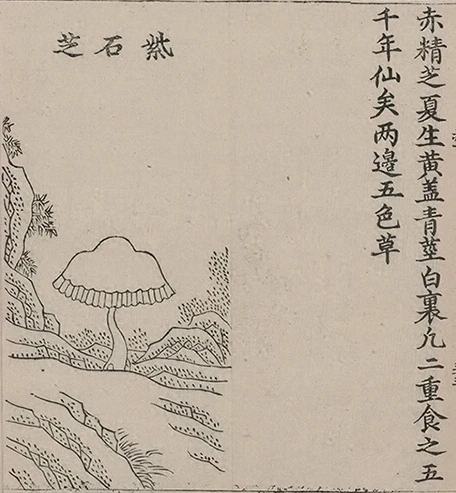 赤精芝夏生黄盖青莖白裏凡二重食之五
千年仙矣两邉五色草
紫石芝